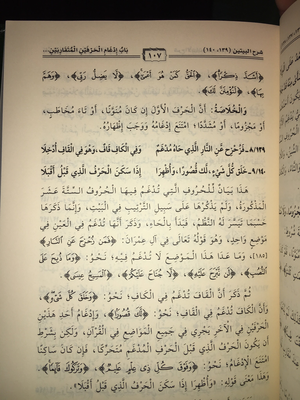 شرح البيتين (١٣٩، ١٤٠)
١٠٧
باب إدغام الحرفين المتقاربين
﴿أَشَدَّ ذِكْرًا﴾، ﴿لَا يَضِلُّ رَبِّي﴾، ﴿وَهَمَّ
بِهَا﴾،
وَالْخُلَاصَةُ: أَنَّ الْحَرْفَ الْأَوَّلَ إِنْ كَانَ مُنَوَّنًا، أَوْ تَاءَ مُخَاطَبٍ،
أَوْ مَجْزُومًا، أَوْ مُشَدَّدًا؛ امْتَنَعَ إِدْغَامُهُ وَوَجَبَ إِظْهَارُهُ.
٨/١٣٩- فَزُحْزِحَ عَنِ النَّارِ الَّذِي حَاهُ مُدْغَمٌ وَفِي الْكَافِ قَافٌ وَهْوَ فِي الْقَافِ أُدْخِلَا
٩/١٤٠- خَلَقَ كُّلَّ شَيْءٍ، لَكَ قُّصُورًا، وَأُظْهِرَا إِذَا سَكَنَ الْحَرْفُ الَّذِي قَبْلُ أَقْبَلَا
هَذَا بَيَانٌ لِلْحُرُوفِ الَّتِي تُدْغَمُ فِيهَا الْحُرُوفُ السِّتَّةَ عَشَرَ
الْمَذْكُورَةُ، وَلَمْ يَذْكُرْهَا عَلَى سَبِيلِ التَّرْتِيبِ فِي الْبَيْتِ، وَإِنَّمَا ذَكَرَهَا
حَسْبَمَا تَيَسَّرَ لَهُ النَّظْمُ، فَبَدَأَ بِالْحَاءِ، وَذَكَرَ أَنَّهَا تُدْغَمُ فِي الْعَيْنِ فِي
مَوْضِعٍ وَاحِدٍ، وَهُوَ قَوْلُهُ تَعَالَى فِي آلِ عِمْرَانَ: ﴿فَمَن زُحْزِحَ عَنِ النَّارِ﴾
[١٨٥]، وَمَا عَدَا هَذَا الْمَوْضِعَ لَا تُدْغَمُ فِيهِ؛ نَحْوُ: ﴿وَمَا ذُبِحَ عَلَى
النُّصُبِ﴾، ﴿لَا جُنَاحَ عَلَيْكُمْ﴾، ﴿الْمَسِيحُ عِيسَى﴾.
ثُمَّ ذَكَرَ أَنَّ الْقَافَ تُدْغَمُ فِي الْكَافِ؛ نَحْوُ: ﴿وَخَلَقَ كُلَّ شَيْءٍ﴾،
وَأَنَّ الْكَافَ تُدْغَمُ فِي الْقَافِ؛ نَحْوُ: ﴿لَكَ قُصُورًا﴾، وَإِدْغَامُ أَحَدِ هَذَيْنِ
الْحَرْفَيْنِ فِي الْآخَرِ يَجْرِي فِي جَمِيعِ الْمَوَاضِعِ فِي الْقُرْآنِ، وَلَكِنْ بِشَرْطِ
أَنْ يَكُونَ الْحَرْفُ الَّذِي قَبْلَ الْحَرْفِ الْمُدْغَمِ مُتَحَرِّكًا، فَإِنْ كَانَ سَاكِنًا
امْتَنَعَ الْإِدْغَامُ؛ نَحْوُ: ﴿وَفَوْقَ كُلِّ ذِي عِلْمٍ عَلِيمٌ﴾، ﴿وَتَرَكُوكَ قَائِمًا﴾،
وَهَذَا مَعْنَى قَوْلِهِ: «وَأُظْهِرَا إِذَا سَكَنَ الْحَرْفُ الَّذِي قَبْلُ أَقْبَلَا».